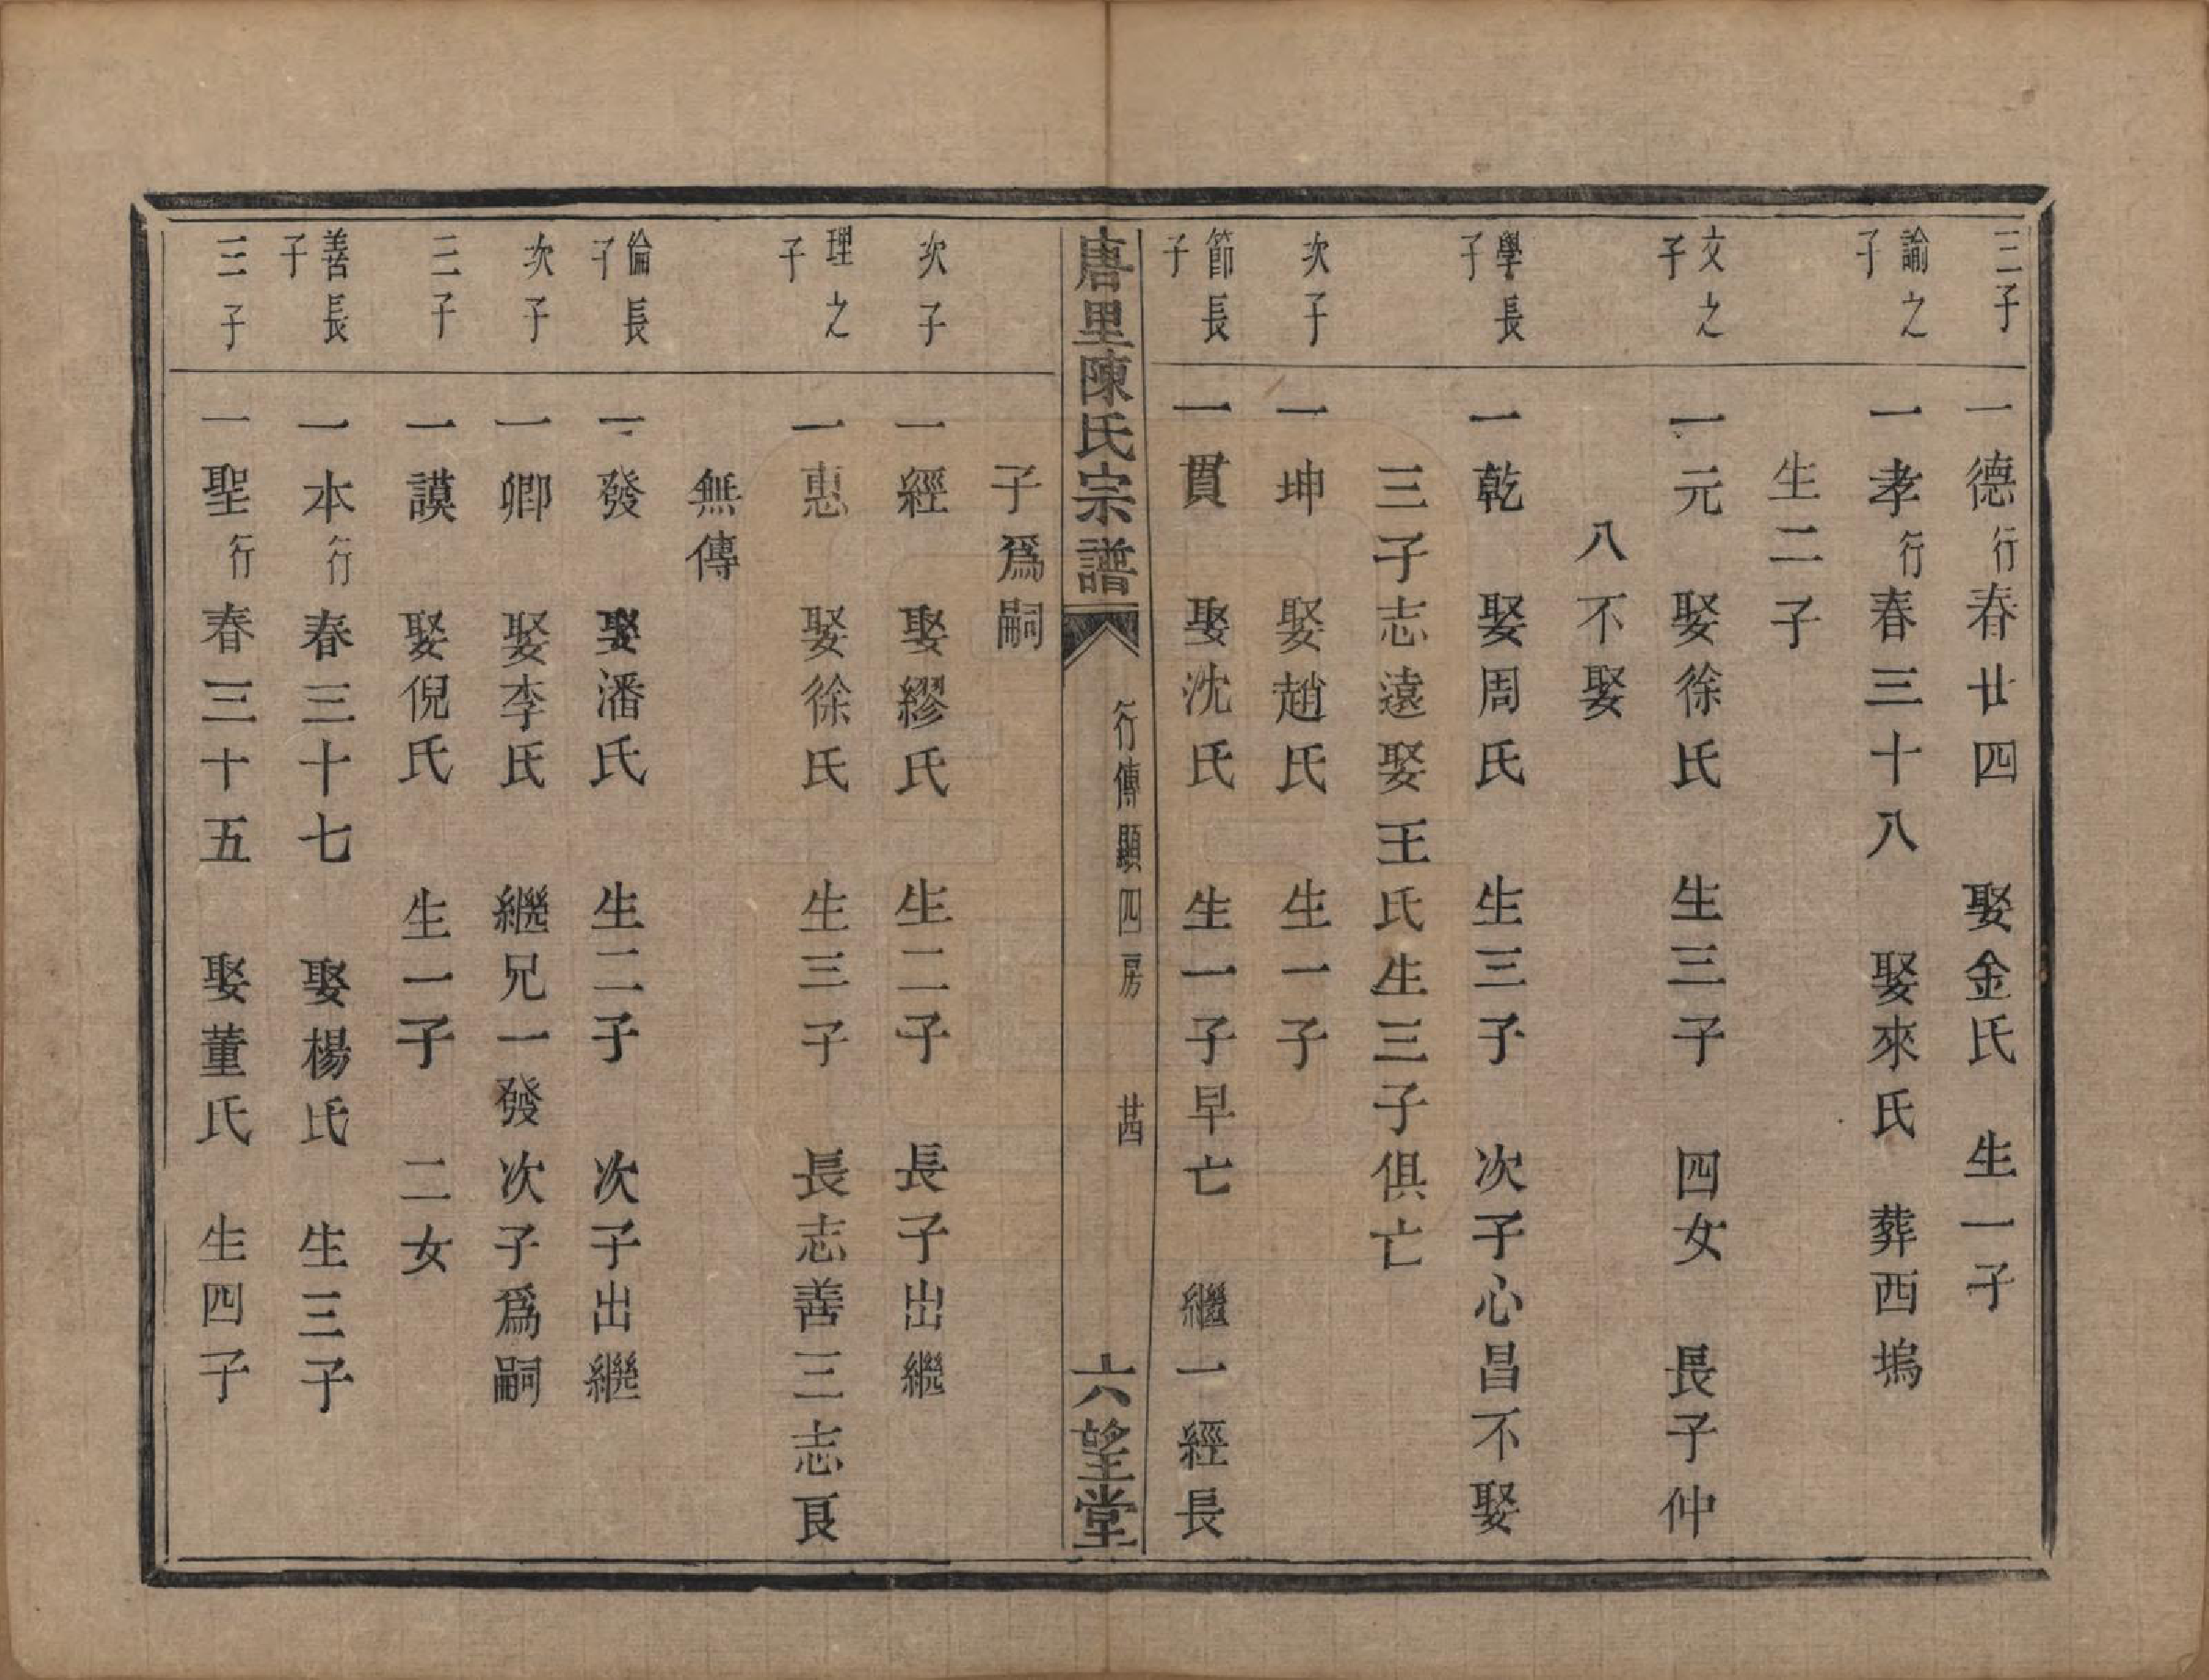 三子
一德行春廿四　娶金氏　生一子
諭之子
一孝行春三十八　娶來氏　葬西塢
生二子
文之子
一元　娶徐氏　生三子　四女　長子仲
八不娶
學長子
一乾　娶周氏　生三子　次子心昌不娶
三子志遠娶王氏生三子俱亡
次子
一坤　娶趙氏　生一子
節長子
一貫　娶沈氏　生一子早亡　繼一經長
唐里陳氏宗譜　行傳顯四房　廿四　六望堂
子爲嗣
次子
一經　娶繆氏　生二子　長子出繼
理之子
一惠　娶徐氏　生三子　長志善三志良
無傳
倫長子
一發　娶潘氏　生二子　次子出繼
次子
一卿　娶李氏　繼兄一發次子爲嗣
三子
一謨　娶倪氏　生一子　二女
善長子
一本行春三十七　娶楊氏　生三子
三子
一聖行春三十五　娶董氏　生四子